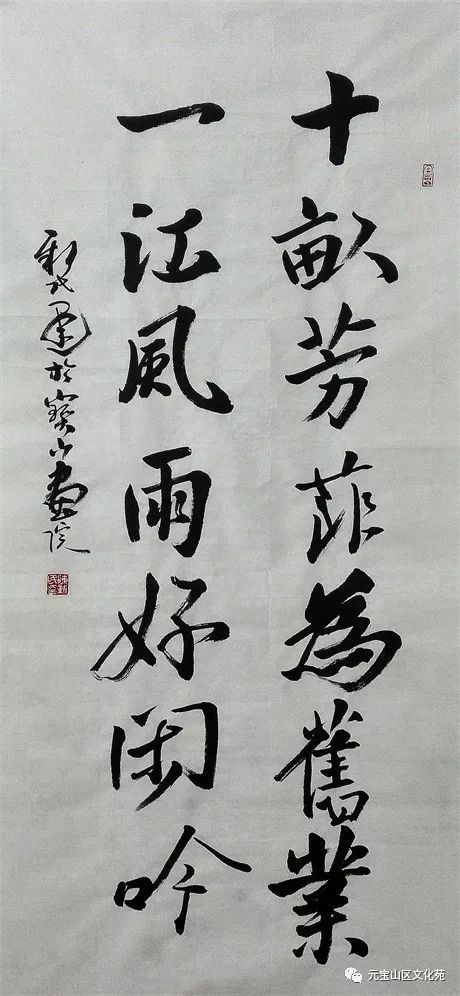 十畝芳菲為舊業
一江風雨好閑吟
於寶山畫院
元宝山区文化苑